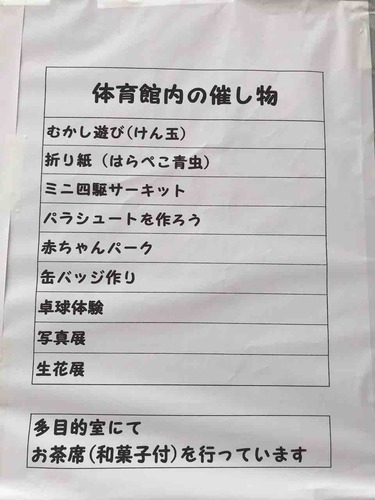 体育館内の催し物
むかし遊び(けん玉)
折り紙（はらぺこ青虫）
ミニ四駆サーキット
パラシュートを作ろう
赤ちゃんパーク
缶バッジ作り
卓球体験
写真展
生花展
多目的室にて
お茶席(和菓子付)を行っています